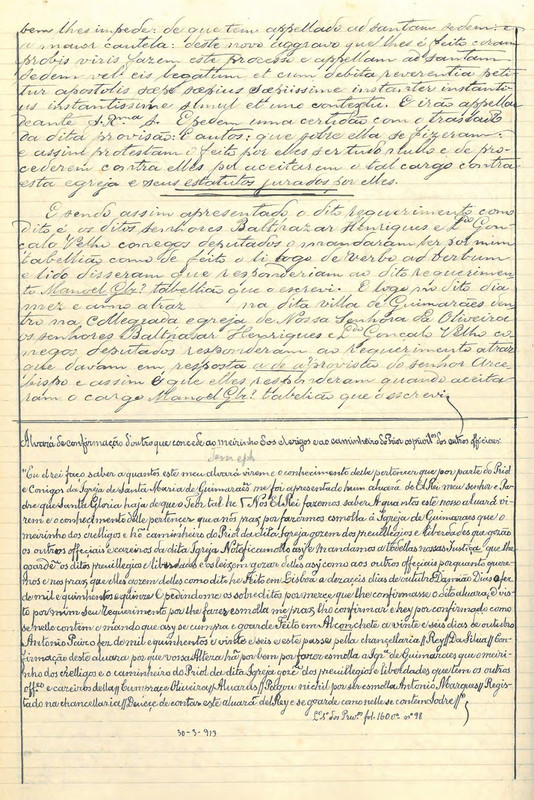 bem lhes impede: de que tem appellado ad santam sedem: e
a maior cautela: deste novo aggravo que lhes é feito coram
probis viris fazem este processo e appellam ad santam
sedem vel eis legatum et cum debita reverentia peti
tur apostolis sæpe sæpius sæpissime instanter instanti
us instantissime simul et uno contextu. E irão appellar
deante S. R.ma S. E pedem uma certidão com o traslado
da dita provisão: E autos: que sobre ella se fizeram:
e assim protestam o feito por elles ser tudo nullo e de pro-
cederem contra elles por aceitarem o tal cargo contra
esta egreja e seus estatutos jurados por elles.
E sendo assim apresentado o dito requerimento como
dito é os ditos senhores Balthazar Henriques e L.do Gon-
çalo Velho conegos deputados o mandaram ler por mim
tabellião como de feito o li logo de verbo ad verbum
e lido disseram que responderiam ao dito requerimen
to Manoel Glz? tabellião que o escrevi. E logo no dito dia
mez e anno atraz na dita villa de Guimarães den
tro na Collegiada egreja de Nossa Senhora da Oliveira
os senhores Balthasar Henriques e L.do Gonçalo Velho co
negos deputados responderam ao requerimento atraz
que davam em resposta a de a provisão do senhor Arce
bispo e assim o que elles responderam quando aceita
ram o cargo Manoel Glz? tabelião que o escrevi
Alvará de confirmação doutro que concede ao meirinho dos clerigos e ao caminheiro do Prior os previl.os dos outros officiaes
Sem eph
"Eu el rei faço saber a quantos este meu alvará virem e conhecimento delle pertencer que por parte do Priol
e Conigos da Igreja de Santa Maria de Guimarães me foi apresentado hum alvará de El Rei meu senhor e Pa-
dre que santa Gloria haja de que o Teor tal he Nós El Rei fazemos saber A quantos este nosso alvará vi
rem e o conhecimento delle pertencer que a nós praz por fazermos esmolla á Igreja de Guimaraes que o
meirinho dos crelligos e ho caminheiro do Priol da dita Igreja gozem dos previllegios e liberdades que gozão
os outros officiaes e cazeiros da dita Igreja Noteficamollo assy e Mandamos a todallas nossas Justiças que lhe
goardem os ditos previllegios e liberdades e os leixem gozar delles asy como aos outros officiaes porquanto quere-
mos e nos praz que elles gozem delles como dito he Feito em Lisboa a dezaseis dias de outubro Damião Dias o fez
de mil e quinhentos e quinze O pedindome os sobreditos por merce que lhe confirmasse o dito alvará, e vis-
to por mim seu Requerimento por lhe fazer esmolla me praz lho confirmar e hey por confirmado como
se nelle contem e mando que asy se cumpra e goarde Feito em Alconchete a vinte e seis dias de outubro
Antonio Paiz o fez de mil e quinhentos e vinte e seis e este passe pella chancellaria // Rey // Da Silva // Con-
firmação deste alvara por que vossa Alteza há por bem por fazer esmolla a Igr.a de Guimaraes que o meiri-
nho dos crelligos e o caminheiro do Priol da dita Igreja goze dos previllegios e liberdades que tem os outros
off.es e cazeiros della // Alvaras // Pagou nichil por ser esmolla Antonio Marques // Regis-
tado na chancellaria //
L.º N.º dos Priv.os fol. 160 v.º nº 98
30-3-919